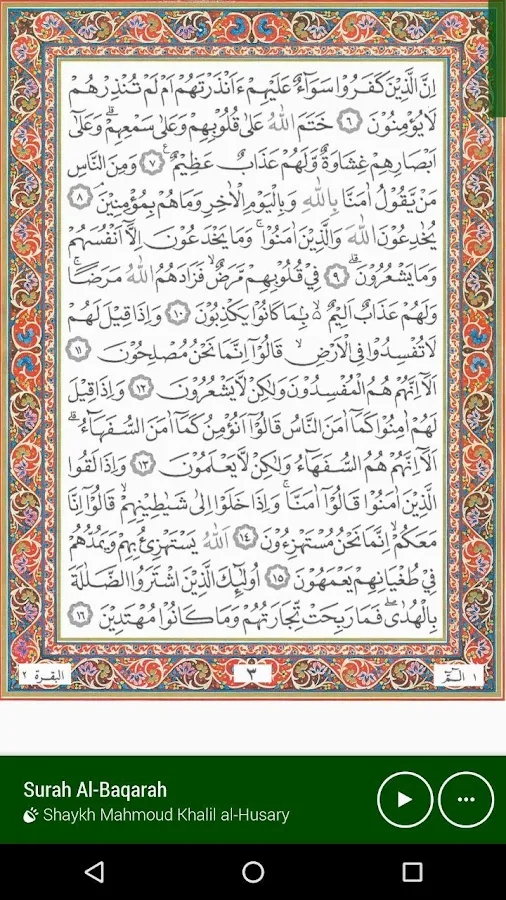 اِنَّ الَّذِيْنَ كَفَرُوْا سَوَآءٌ عَلَيْهِمْ ءَاَنْذَرْتَهُمْ اَمْ لَمْ تُنْذِرْهُمْ
لَا يُؤْمِنُوْنَ ٦ خَتَمَ اللّٰهُ عَلٰى قُلُوْبِهِمْ وَعَلٰى سَمْعِهِمْ ۗ وَعَلٰٓى
اَبْصَارِهِمْ غِشَاوَةٌ وَّلَهُمْ عَذَابٌ عَظِيْمٌ ٧ وَمِنَ النَّاسِ
مَنْ يَّقُوْلُ اٰمَنَّا بِاللّٰهِ وَبِالْيَوْمِ الْاٰخِرِ وَمَا هُمْ بِمُؤْمِنِيْنَ ٨
يُخٰدِعُوْنَ اللّٰهَ وَالَّذِيْنَ اٰمَنُوْا ۚ وَمَا يَخْدَعُوْنَ اِلَّآ اَنْفُسَهُمْ
وَمَا يَشْعُرُوْنَ ٩ فِيْ قُلُوْبِهِمْ مَّرَضٌ ۙ فَزَادَهُمُ اللّٰهُ مَرَضًا ۚ
وَلَهُمْ عَذَابٌ اَلِيْمٌ ۙ بِمَا كَانُوْا يَكْذِبُوْنَ ١٠ وَاِذَا قِيْلَ لَهُمْ
لَا تُفْسِدُوْا فِى الْاَرْضِ ۙ قَالُوْٓا اِنَّمَا نَحْنُ مُصْلِحُوْنَ ١١
اَلَآ اِنَّهُمْ هُمُ الْمُفْسِدُوْنَ وَلٰكِنْ لَّا يَشْعُرُوْنَ ١٢ وَاِذَا قِيْلَ
لَهُمْ اٰمِنُوْا كَمَآ اٰمَنَ النَّاسُ قَالُوْٓا اَنُؤْمِنُ كَمَآ اٰمَنَ السُّفَهَآءُ ۗ
اَلَآ اِنَّهُمْ هُمُ السُّفَهَآءُ وَلٰكِنْ لَّا يَعْلَمُوْنَ ١٣ وَاِذَا لَقُوا
الَّذِيْنَ اٰمَنُوْا قَالُوْٓا اٰمَنَّا ۚ وَاِذَا خَلَوْا اِلٰى شَيٰطِيْنِهِمْ ۙ قَالُوْٓا اِنَّا
مَعَكُمْ ۙ اِنَّمَا نَحْنُ مُسْتَهْزِءُوْنَ ١٤ اَللّٰهُ يَسْتَهْزِئُ بِهِمْ وَيَمُدُّهُمْ
فِيْ طُغْيَانِهِمْ يَعْمَهُوْنَ ١٥ اُولٰٓئِكَ الَّذِيْنَ اشْتَرَوُا الضَّلٰلَةَ
بِالْهُدٰى ۖ فَمَا رَبِحَتْ تِّجَارَتُهُمْ وَمَا كَانُوْا مُهْتَدِيْنَ ١٦
١ الٓمّٓ ٣ البقرة ٢
Surah Al-Baqarah
Shaykh Mahmoud Khalil al-Husary